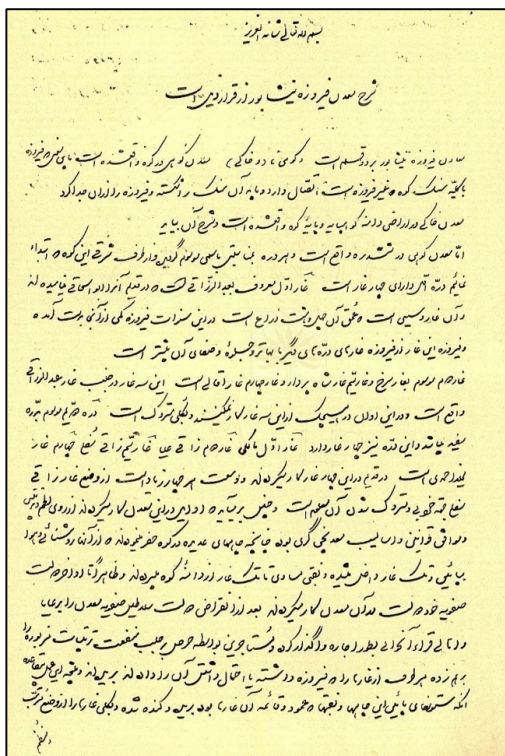 بسم الله تعالی شانه العزیز
شرح معدن فیروزه نیشابور از قرار ذیل است
معادن فیروزه نیشابور بر دو قسم است کوهی و خاکی معدن کوهی در کوه واقع شده است فیروزه
سنگ کوه غیر فیروزه است اتصال دارد و باید آن سنگ را شکسته و فیروزه را از آن جدا کرد
معدن خاکی در اراضی دامنه کوه و پایه کوه واقع شده است و شرح آن بیاید
اما معدن کوهی در شش دره واقع است و هر دره بمناسبتی باسمی موسوم گردیده و از طرف شرقی این کوه ابتدا
دره اول دارای چهار غار است غار اول معروف بعبدالرزاقی است در قدیم آنرا ابواسحاقی نامیده اند
و آن غار وسیعی است و عمق آن ذراع است در این سنوات فیروزه کمی از آنجا بدست آمده
و فیروزه این غار از فیروزه غارهای درّه‌های دیگر بهتر و جلوه و صفای آن بیشتر است
غار دوم موسوم بغار سرخ و غار سیّم غار شاه پردار و غار چهارم غار آقالی است این سه غار در جنب غار عبدالرزاقی
واقع است و در این اول در هیچیک از این سه غار کار نمیکنند و بکلی متروک است دره دویم موسوم بدرّه
سفید میباشد و این درّه نیز چهار غار دارد غار اول مالکی غار دوم زاقی علیا غار سیّم زاقی سفلی چهارم غار
است در قدیم در این چهار غار کار میکرده‌اند و وسعت هر چهار زیاد است از وضع غار زاقی
سفلی جهة خرابی و متروک شدن آن معلوم است و چنین بر میآید در این معدن کار میکرده‌اند از روی نظم
و موافق قوانین و اسالیب معدنچی گری بوده چنانچه چاههای عدیده در کوه حفر نموده‌اند از آنها روشنائی و هوا
بپائین و تنگ غار داخل شده و نقبی مساوی تا تنگ غار از دامنه کوه بریده‌اند و ظاهراً تا اواخر دولت
صفویه خود دولت در آن معدن کار میکرده‌اند بعد از انقراض دولت سلاطین صفویه معدن را برعایا
و اهالی قراء آنجا بطور اجاره واگذار کرده و مستأجرین بواسطه حرص بر جلب منفعت ترتیبات مزبوره را
بر هم زده هر طرف از غارها را فیروزه داشته یا احتمال داشتن آن را داده‌اند بریده‌اند و نتیجه این عمل
آنکه ستونهای پائین این چاهها و نقبها عمود و قائمه آن غارها بوده بریده و کنده شده و بکلی غارها را از وضع